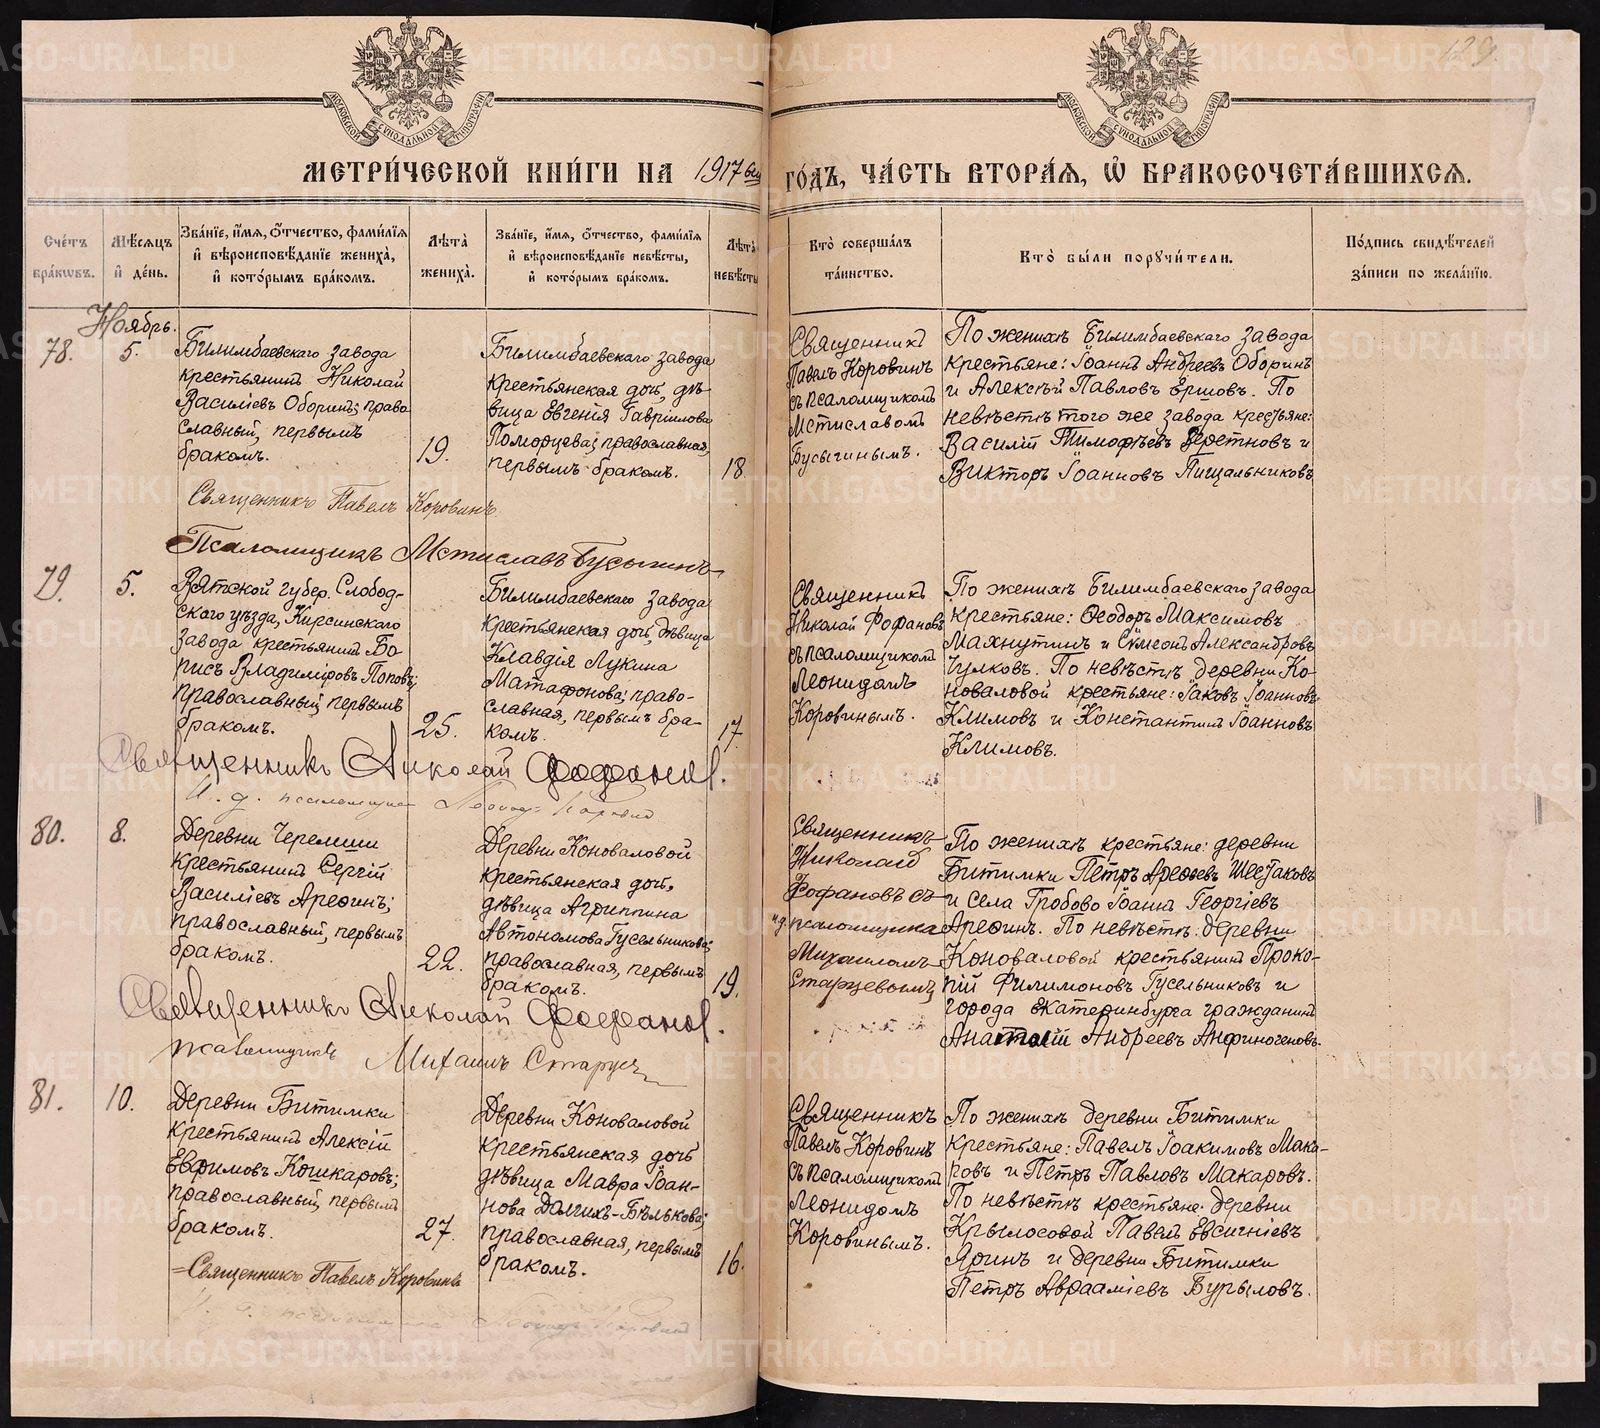 129.
МОСКОВСКОЙ СѴНОДАЛЬНОЙ ТИПОГРАФІИ
МОСКОВСКОЙ СѴНОДАЛЬНОЙ ТИПОГРАФІИ
МЕТРИ́ЧЕСКОЙ КНИ́ГИ НА 1917 ГО́ДЪ, ЧА́СТЬ ВТОРА́Я, Ѽ БРАКОСОЧЕТА́ВШИХСЯ.
Сче́тъ бра́кѡвъ.
Мѣ́сяцъ и҆ де́нь.
Зва́нїе, и҆́мя, ѻ҆́тчество, фами́лїя
и҆ вѣроисповѣ́данїе жениха̀,
и҆ кото́рымъ бра́комъ.
Лѣта̀ жениха̀.
Зва́нїе, и҆́мя, ѻ҆́тчество, фами́лїя
и҆ вѣроисповѣ́данїе невѣ́сты,
и҆ кото́рымъ бра́комъ.
Лѣта̀ невѣ́сты
Кто̀ соверша́лъ
та́инство.
Кто̀ бы́ли порꙋчи́тели.
По́дпись свидѣ́телей
за́писи по жела́нїю.
Ноябрь.
78.
5.
Билимбаевскаго завода
крестьянинъ Николай
Василіевъ Оборинъ; право
славный, первымъ
бракомъ.
19.
Билимбаевскаго завода
крестьянская дочь, дѣ-
вица Евгенія Гавріилова
Поморцева; православная,
первымъ бракомъ.
18.
Священникъ
Павелъ Коровинъ
съ псаломщикомъ
Мстиславомъ
Бусыгинымъ.
По женихѣ Билимбаевскаго завода
крестьяне: Іоаннъ Андреевъ Оборинъ
и Алексѣй Павловъ Ершовъ. По
невѣстѣ того же завода крестьяне:
Василій Тимофѣевъ Веретновъ и
Викторъ Іоанновъ Пищальниковъ
Священникъ Павелъ Коровинъ
Псаломщикъ Мстиславъ Бусыгинъ
79.
5.
Вятской губер. Слобод-
скаго уѣзда, Кирсинскаго
завода крестьянинъ Бо-
рисъ Владиміровъ Поповъ;
православный, первымъ
бракомъ.
25.
Билимбаевскаго завода
крестьянская дочь, дѣвица
Клавдія Лукина
Матафонова; право-
славная, первымъ бра-
комъ.
17.
Священникъ
Николай Фофановъ
съ псаломщикомъ
Леонидомъ
Коровинымъ.
По женихѣ Билимбаевскаго завода
крестьяне: Ѳеодоръ Максимовъ
Махнутинъ и Сѷмеонъ Александровъ
Чулковъ. По невѣстѣ деревни Ко-
новаловой крестьяне: Іаковъ Іоанновъ
Климовъ и Константинъ Іоанновъ
Климовъ.
Священникъ Николай Фофановъ.
И. д. псаломщика Леонидъ Коровинъ
80.
8.
Деревни Черемши
крестьянинъ Сергій
Василіевъ Арефинъ;
православный, первымъ
бракомъ.
22.
Деревни Коноваловой
крестьянская дочь,
дѣвица Агриппина
Автономова Гусельникова;
православная, первымъ
бракомъ.
19.
Священникъ
Николай
Фофановъ съ
и д псаломщика
Михаиломъ
Старцевымъ
По женихѣ крестьяне: деревни
Битимки Петръ Арефьевъ Шестаковъ
и села Гробово Іоаннъ Георгіевъ
Арефинъ. По невѣстѣ: деревни
Коноваловой крестьянинъ Проко-
пій Филимоновъ Гусельниковъ и
города Екатеринбурга гражданинъ
Анатолій Андреевъ Анфиногеновъ.
Священникъ Николай Фофановъ.
псаломщикъ Михаилъ Старцевъ
81.
10.
Деревни Битимки
крестьянинъ Алексій
Евфимовъ Кошкаровъ;
православный, первымъ
бракомъ.
27.
Деревни Коноваловой
крестьянская дочь
дѣвица Мавра Іоан-
нова Долгихъ-Бѣлькова;
православная, первымъ
бракомъ.
16.
Священникъ
Павелъ Коровинъ
съ псаломщикомъ
Леонидомъ
Коровинымъ.
По женихѣ деревни Битимки
крестьяне: Павелъ Іоакимовъ Мака-
ровъ и Петръ Павловъ Макаровъ.
По невѣстѣ крестьяне: деревни
Крылосовой Павелъ Евсигніевъ
Яринъ и деревни Битимки
Петръ Авраамiевъ Бурыловъ.
Священникъ Павелъ Коровинъ
METRIKI.GASO-URAL.RU